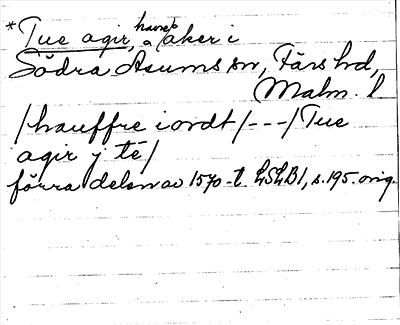 *Tue agir, havre
a åker i
Södra Åsums sn, Färs hd,
Malm. l
/hauffre iordt/---/Tue
agir j tē/
förra delen av 1570-t. LSLB1, s. 195. orig.